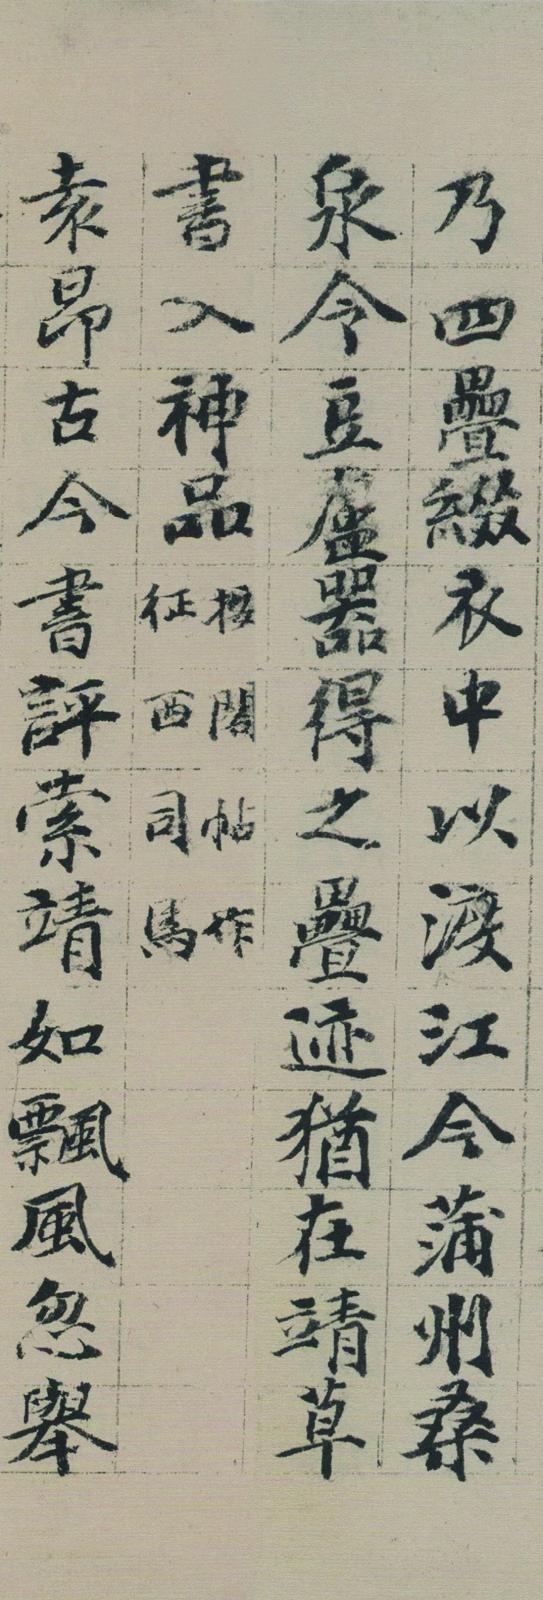 乃四疊綴衣中以渡江今蒲州桑
泉令豆盧器得之疊迹猶在靖草
書入神品
按閣帖作
征西司馬
袁昂古今書評索靖如飄風忽舉